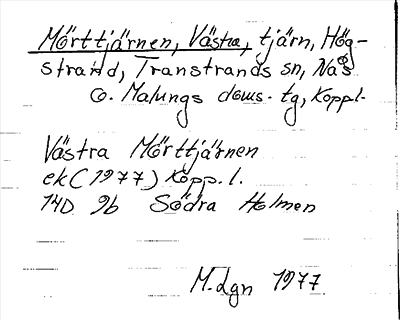 Mörttjärnen, Västra, tjärn, Hög-
strand, Transtrands sn, Nås
o. Malungs doms. tg, Koppl.
Västra Mörttjärnen
ek (1977) Kopp. l.
14D 9b Södra Holmen
M. Lgn 1977